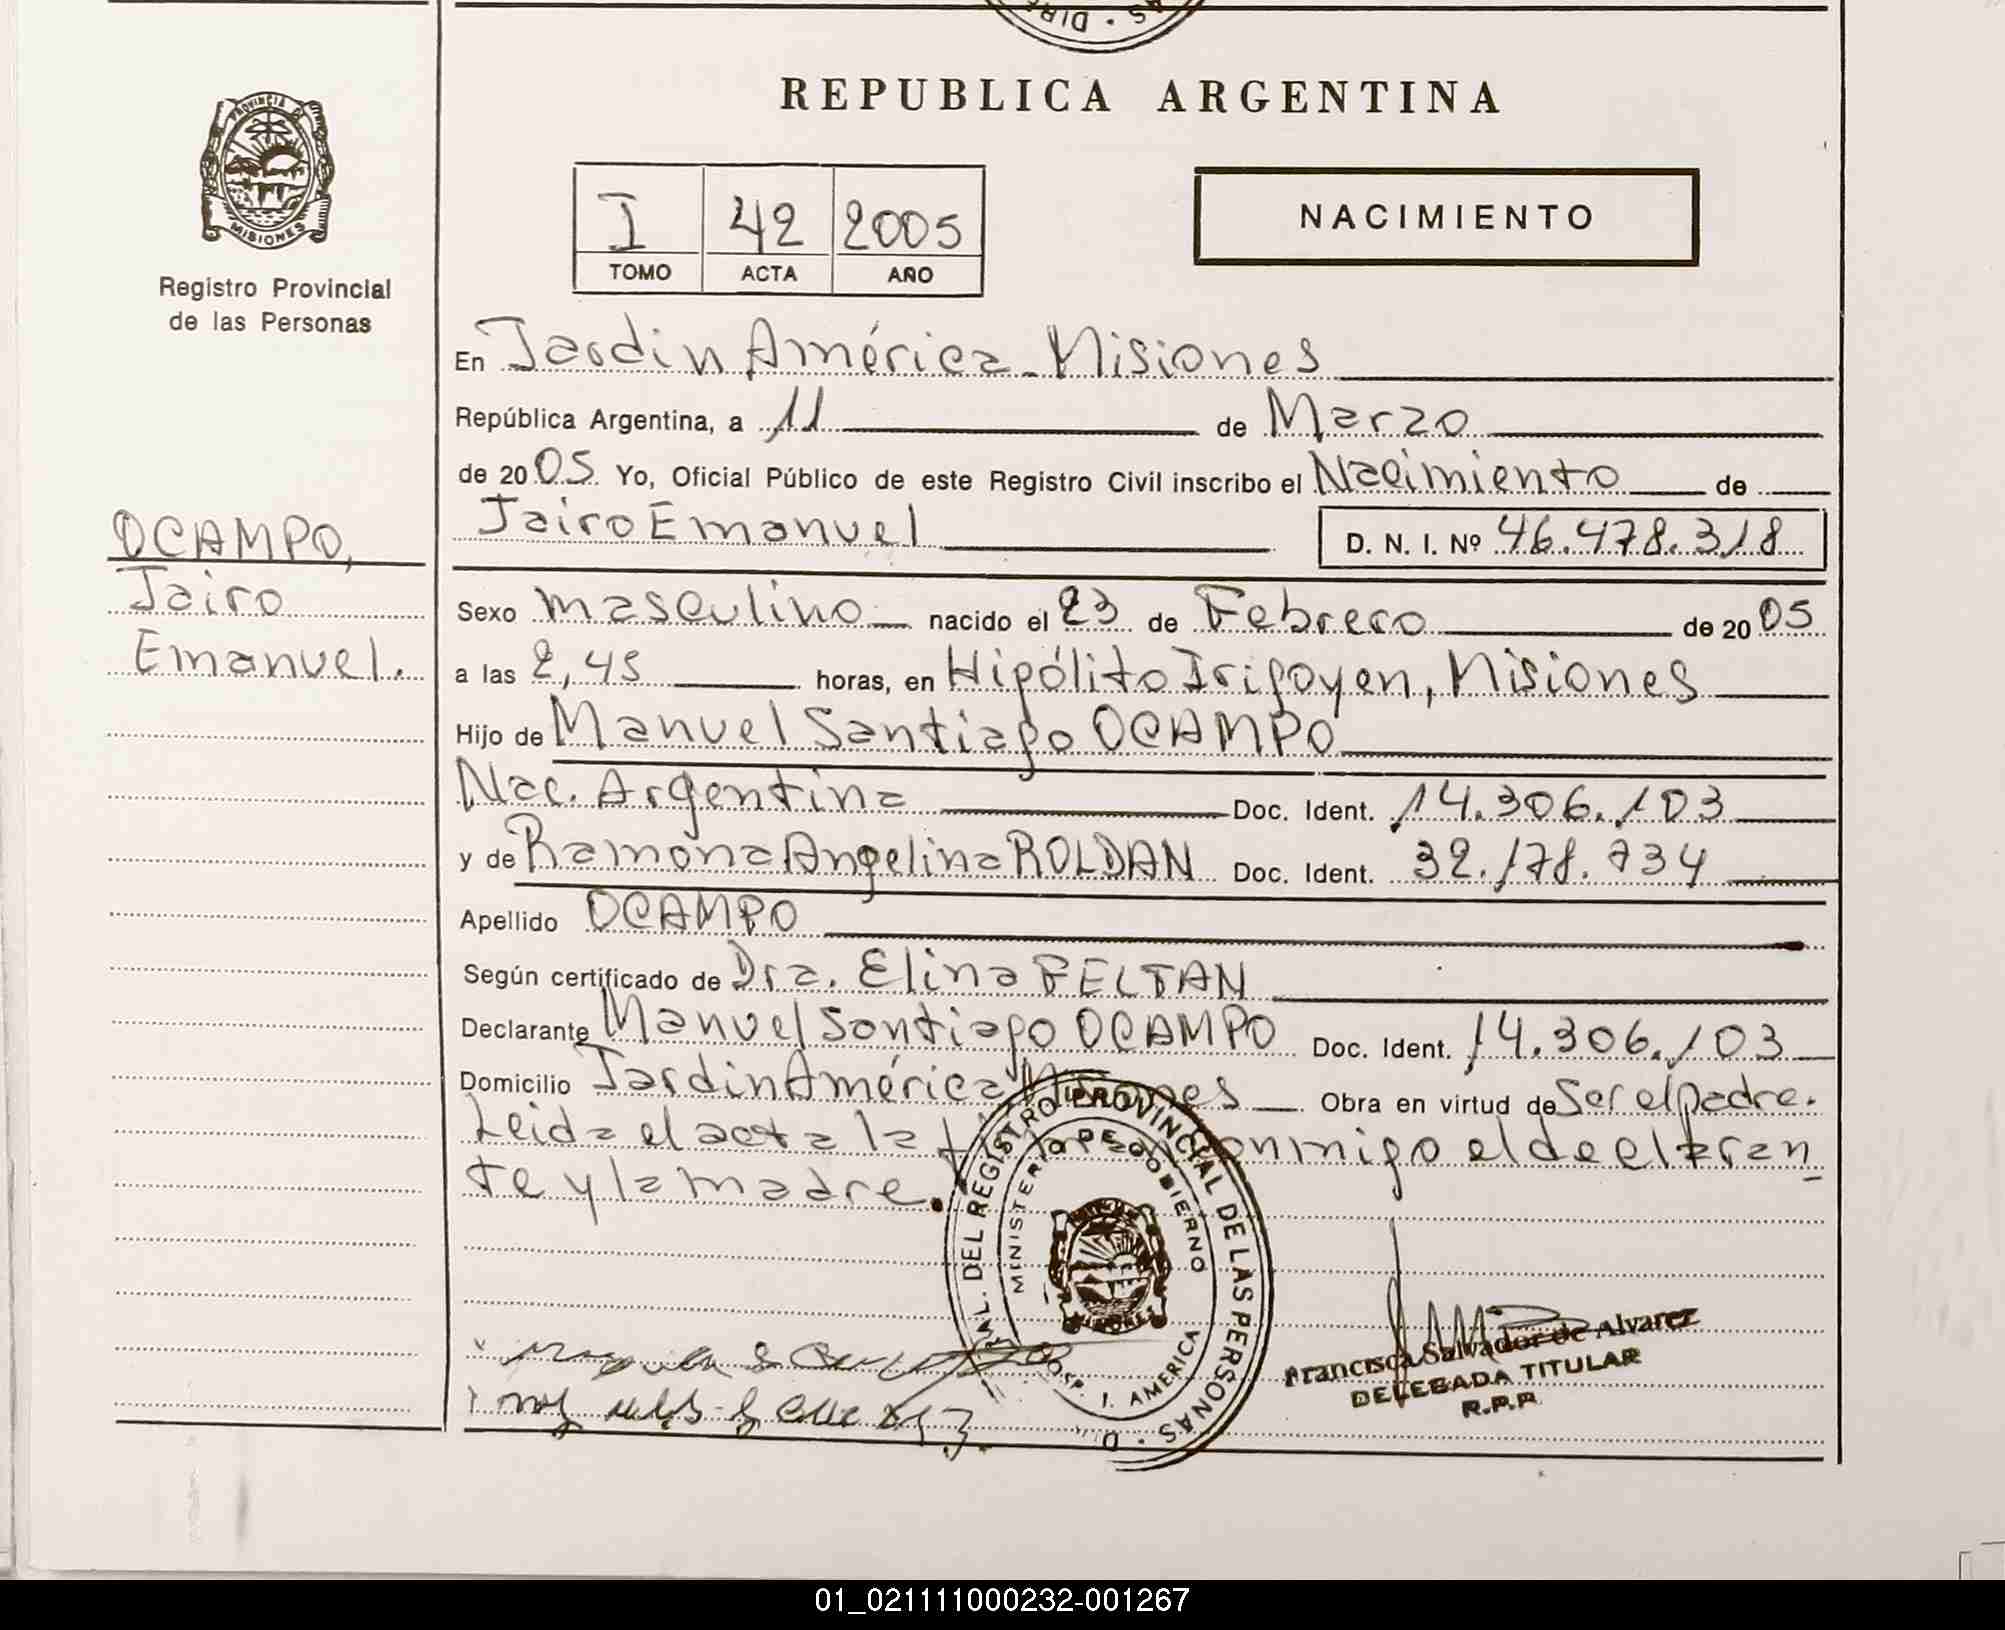 REPUBLICA ARGENTINA
PROVINCIA DE
MISIONES
Registro Provincial
de las Personas
I 42 2005
TOMO ACTA AÑO
NACIMIENTO
OCAMPO,
Jairo
Emanuel.
En Jardin América - Misiones
República Argentina, a 11 de Marzo
de 2005 Yo, Oficial Público de este Registro Civil inscribo el Nacimiento de
Jairo Emanuel D. N. I. Nº 46.478.318
Sexo masculino nacido el 23 de Febrero de 2005
a las 2,45 horas, en Hipólito Irigoyen, Misiones
Hijo de Manuel Santiago OCAMPO
Nac. Argentina Doc. Ident. 14.306.103
y de Ramona Angelina ROLDAN Doc. Ident. 32.178.734
Apellido OCAMPO
Según certificado de Dra. Elina BELTAN
Declarante Manuel Santiago OCAMPO Doc. Ident. 14.306.103
Domicilio Jardin América Misiones Obra en virtud de Ser el padre.
Leida el acta la conmigo el deelaran
te y la madre.
DEL REGISTRO PROVINCIAL DE LAS PERSONAS
MINISTERIO DE GOBIERNO
J. AMERICA
Francisca Salvador de Alvarez
DELEGADA TITULAR
R.P.P.
01_021111000232-001267